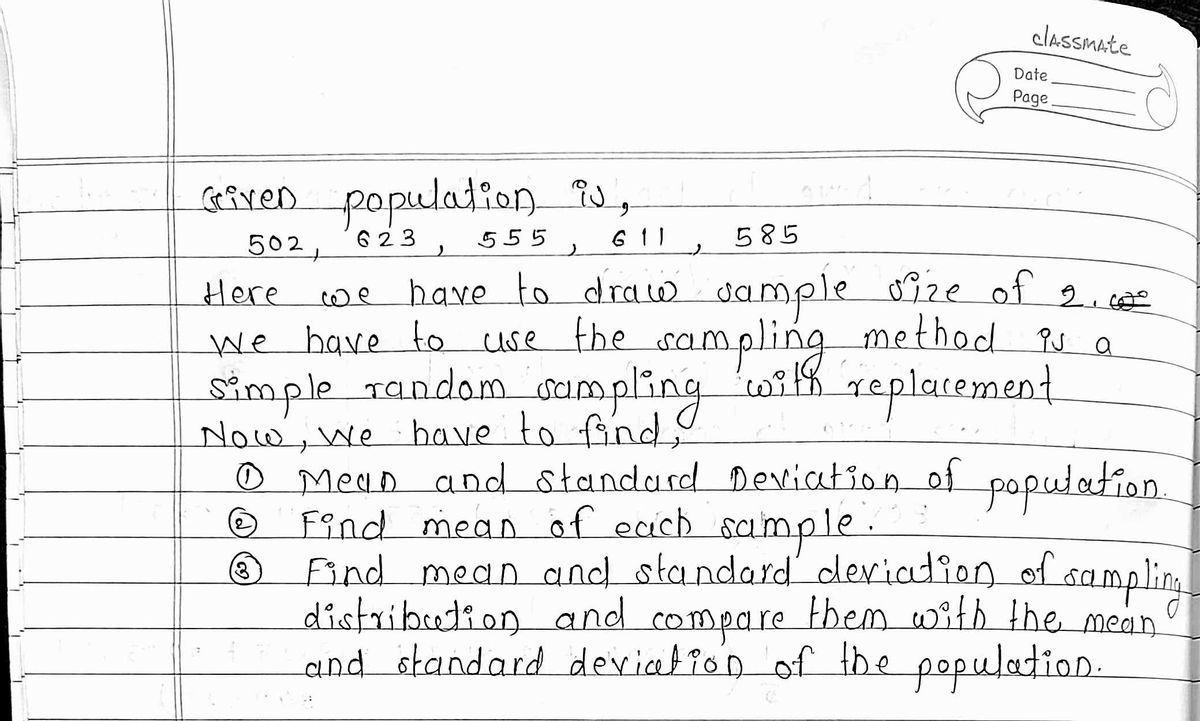 classmate
Date
Page
Given population is,
502, 623, 555, 611, 585
Here we have to draw sample size of 2.
We have to use the sampling method is a
simple random sampling with replacement
Now, we have to find,
① Mean and standard Deviation of population.
② Find mean of each sample.
③ Find mean and standard deviation of sampling
distribution and compare them with the mean
and standard deviation of the population.